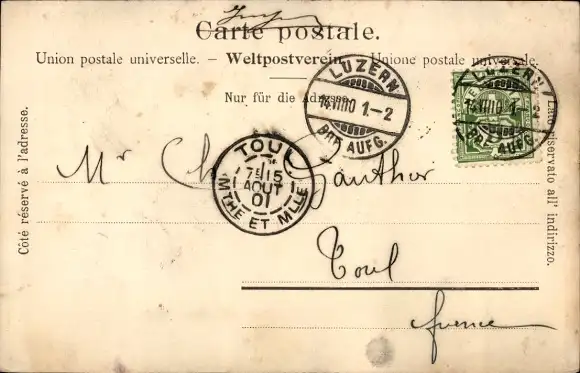 Carte postale.
Union postale universelle. – Weltpostverein. – Unione postale universale.
Nur für die Adresse.
Côté réservé à l'adresse.
Lato riservato all' indirizzo.
LUZERN
1–2
BRF. AUFG.
LUZERN
1–2
BRF. AUFG.
TOUL
7 15
AOUT
01
MTHE ET MLLE
Mr Ch Gauthier
Toul
France